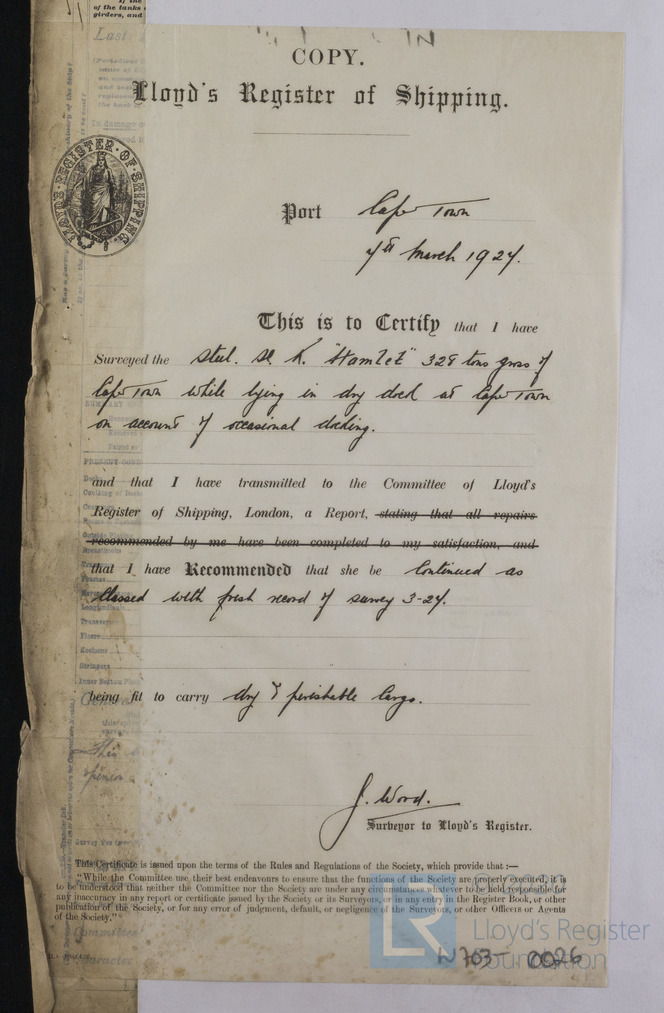 COPY.
Lloyd's Register of Shipping.
LLOYD'S REGISTER OF SHIPPING
Port Cape Town
7th March 1927.
This is to Certify that I have
Surveyed the Steel. Sc. K. "Hamlet" 328 tons gross of
Cape Town while lying in dry dock at Cape Town
on account of occasional docking.
and that I have transmitted to the Committee of Lloyd's
Register of Shipping, London, a Report, stating that all repairs
recommended by me have been completed to my satisfaction, and
that I have Recommended that she be Continued as
Classed with fresh record of survey 3-27.
being fit to carry dry & perishable Cargo.
J. Word.
Surveyor to Lloyd's Register.
This Certificate is issued upon the terms of the Rules and Regulations of the Society, which provide that :—
"While the Committee use their best endeavours to ensure that the functions of the Society are properly executed, it is
to be understood that neither the Committee nor the Society are under any circumstances whatever to be held responsible for
any inaccuracy in any report or certificate issued by the Society or its Surveyors, or in any entry in the Register Book, or other
publication of the Society, or for any error of judgment, default, or negligence of the Surveyors, or other Officers or Agents
of the Society."
LR
Heritage
Lloyd's Register
Foundation
W703- 0026
of the tanks
girders, and
Last